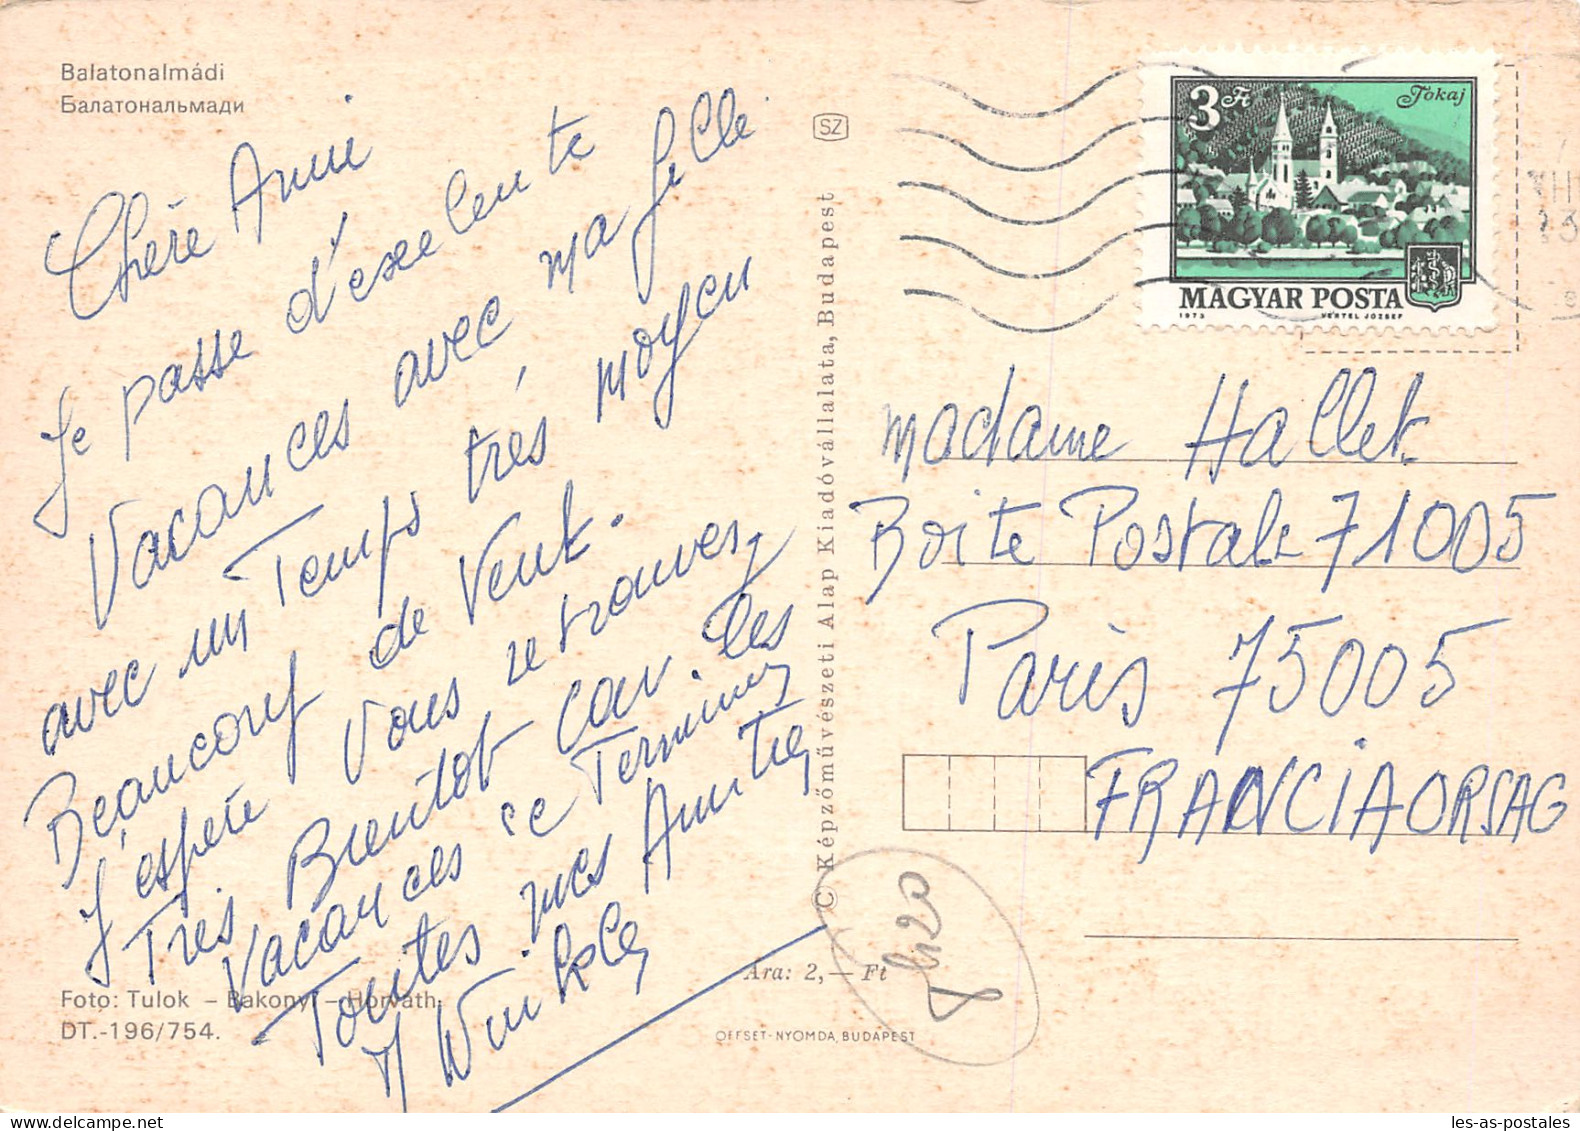 Balatonalmádi
Балатональмади
Chère Anni
Je passe d'exelente
Vacances avec ma fille
avec un Temps très moyen
Beaucoup de Vent.
J'espère Vous retrouver
Très Bientôt car les
Vacances se Terminer
Toutes mes Amitiés
Winkler
Foto: Tulok – Bakonyi – Horváth
DT.-196/754.
SZ
© Képzőművészeti Alap Kiadóvállalata, Budapest
Ára: 2,— Ft
OFFSET-NYOMDA, BUDAPEST
3 Ft
Tokaj
MAGYAR POSTA
1973
VERTEL JÓZSEF
Madame Hallet
Boite Postale 71005
Paris 75005
FRANCIAORSAG
les-as-postales